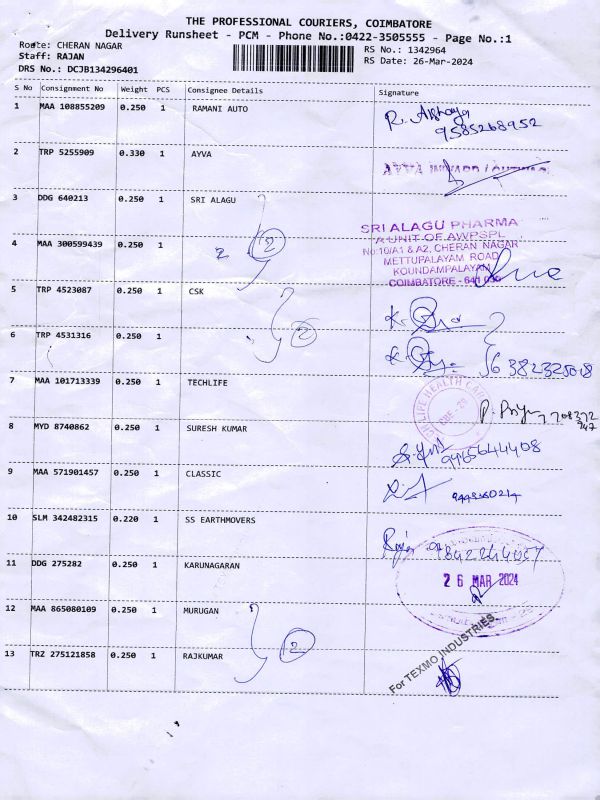 THE PROFESSIONAL COURIERS, COIMBATORE
Delivery Runsheet - PCM - Phone No.:0422-3505555 - Page No.:1
Route: CHERAN NAGAR RS No.: 1342964
Staff: RAJAN RS Date: 26-Mar-2024
DRS No.: DCJB134296401
S No Consignment No Weight PCS Consignee Details Signature
1 MAA 108855209 0.250 1 RAMANI AUTO
9585268952
2 TRP 5255909 0.330 1 AYVA
AYVA INWARD / OUTWARD
3 DDG 640213 0.250 1 SRI ALAGU
SRI ALAGU PHARMA
A UNIT OF AWPSPL
No:10/A1 & A2, CHERAN NAGAR
METTUPALAYAM ROAD
KOUNDAMPALAYAM
COIMBATORE - 641 030
4 MAA 300599439 0.250 1
2 2
5 TRP 4523087 0.250 1 CSK
6 TRP 4531316 0.250 1
2
6382325018
7 MAA 101713339 0.250 1 TECHLIFE
LIFE HEALTH CARE
CBE - 29
P. Priya 7708372
947
8 MYD 8740862 0.250 1 SURESH KUMAR
9465644408
9 MAA 571901457 0.250 1 CLASSIC
10 SLM 342482315 0.220 1 SS EARTHMOVERS
9842244057
11 DDG 275282 0.250 1 KARUNAGARAN
26 MAR 2024
12 MAA 865080109 0.250 1 MURUGAN
2
13 TRZ 275121858 0.250 1 RAJKUMAR
For TEXMO INDUSTRIES